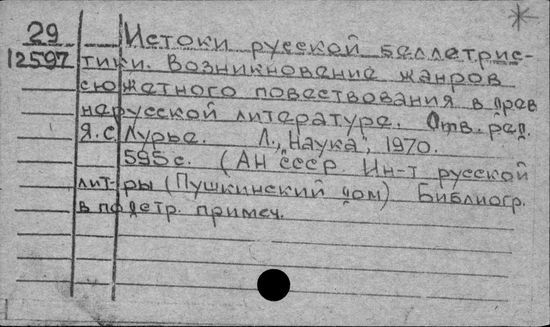 29 Истоки русской беллетрис-
12597 тики. Возникновение жанров
сюжетного повествования в древ
нерусской литературе. Отв. ред.
Я. С. Лурье. Л., "Наука", 1970.
595 с. (АН СССР Ин-т русской
лит-ры (Пушкинский дом) Библиогр.
в подстр. примеч.